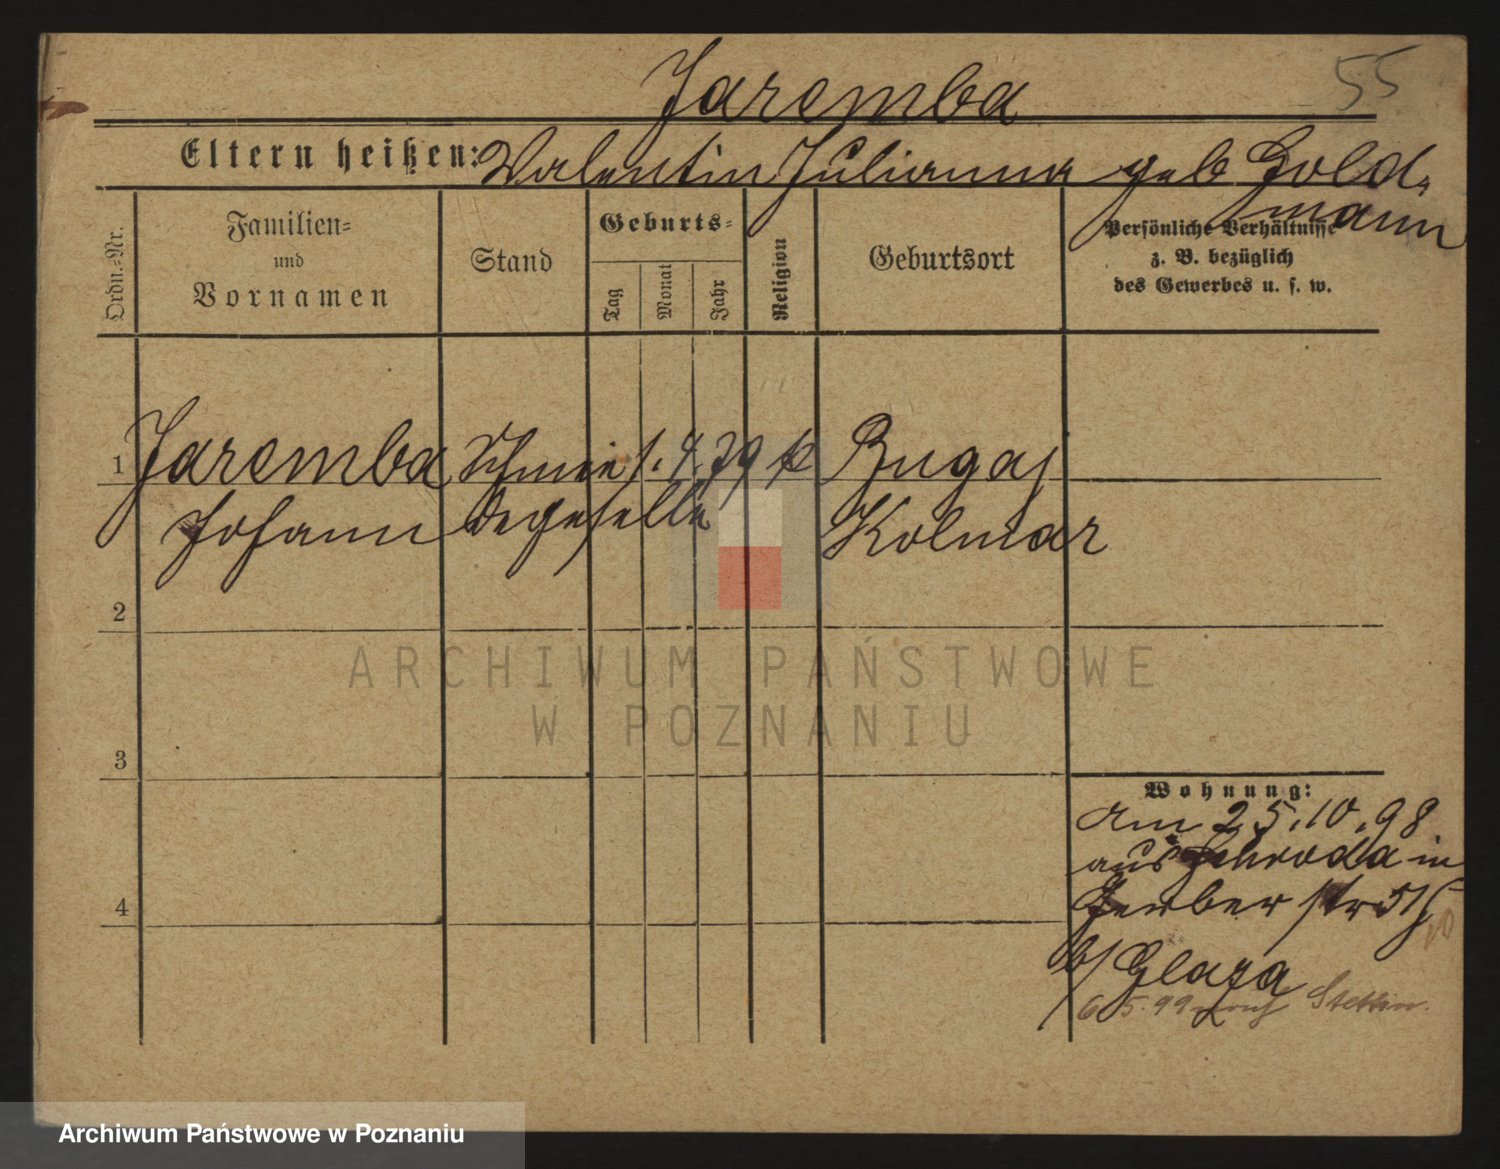 Jaremba 55
Eltern heißen: Valentin Julianna geb Gold-
mann
Ordn.-Nr.
Familien-
und
Vornamen
Stand
Geburts-
Tag
Monat
Jahr
Religion
Geburtsort
Persönliche Verhältnisse
z. B. bezüglich
des Gewerbes u. s. w.
1 Jaremba Schmie 1. 4. 79 k Bugaj
Johann degeselle Kolmar
2
ARCHIWUM PAŃSTWOWE
W POZNANIU
3
Wohnung:
am 25.10.98
aus Schroda in
4 Gerber str
b/ Glaza
6 5. 99 nach Stettin.
Archiwum Państwowe w Poznaniu